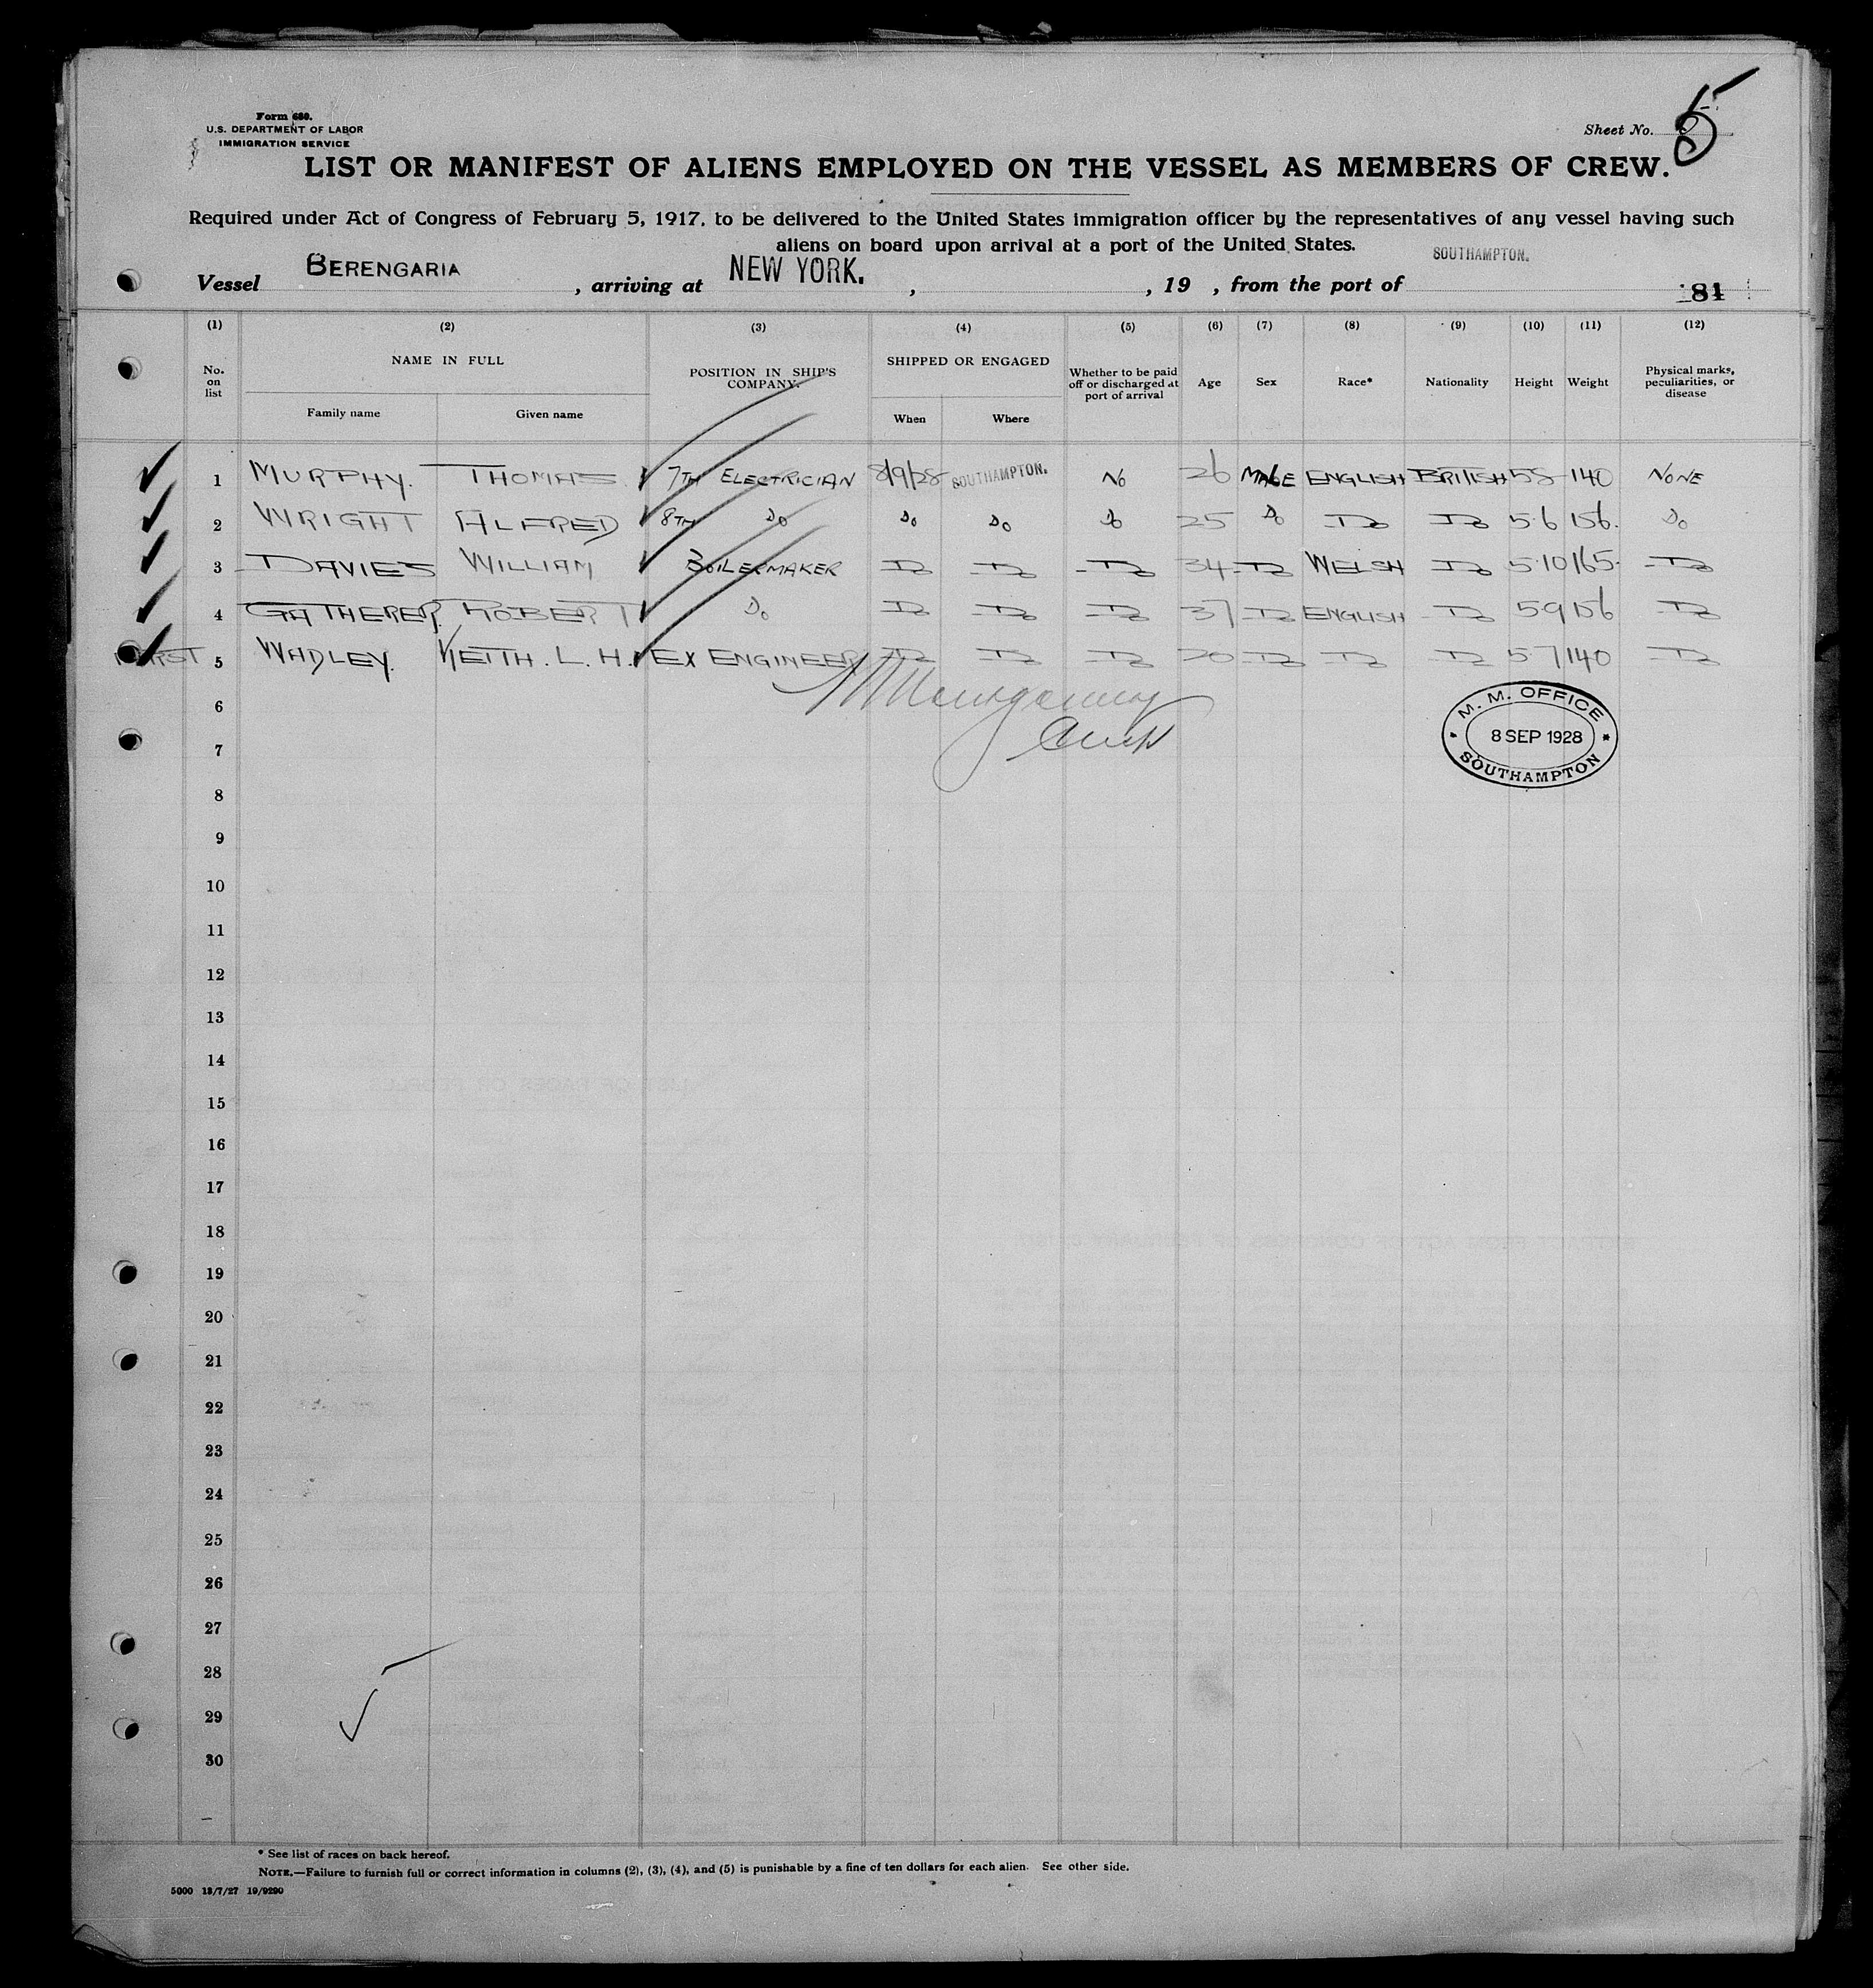 Form 680.
U.S. DEPARTMENT OF LABOR
IMMIGRATION SERVICE
Sheet No. 5
LIST OR MANIFEST OF ALIENS EMPLOYED ON THE VESSEL AS MEMBERS OF CREW.
Required under Act of Congress of February 5, 1917, to be delivered to the United States immigration officer by the representatives of any vessel having such
aliens on board upon arrival at a port of the United States.
Vessel BERENGARIA, arriving at NEW YORK. , , 19 , from the port of SOUTHAMPTON.
81
(1) (2) (3) (4) (5) (6) (7) (8) (9) (10) (11) (12)
No. on list NAME IN FULL Family name Given name POSITION IN SHIP'S COMPANY. SHIPPED OR ENGAGED When Where Whether to be paid off or discharged at port of arrival Age Sex Race* Nationality Height Weight Physical marks, peculiarities, or disease
1 MURPHY. THOMAS 7TH ELECTRICIAN 8/9/28 SOUTHAMPTON. No 26 MALE ENGLISH BRITISH 5 8 140 NONE
2 WRIGHT ALFRED 8TH Do Do Do Do 25 Do Do Do 5.6 156. Do
3 DAVIES WILLIAM BOILERMAKER Do Do Do 34 Do WELSH Do 5.10 165. Do
4 GATHERER. ROBERT Do Do Do Do 37 Do ENGLISH Do 5.9 156 Do
5 WADLEY. KEITH. L. H. EX ENGINEER Do Do Do 20 Do Do Do 5.7 140 Do
6
7
M. M. OFFICE
8 SEP 1928
SOUTHAMPTON
8
9
10
11
12
13
14
15
16
17
18
19
20
21
22
23
24
25
26
27
28
29
30
* See list of races on back hereof.
NOTE.—Failure to furnish full or correct information in columns (2), (3), (4), and (5) is punishable by a fine of ten dollars for each alien. See other side.
5000 13/7/27 19/9290